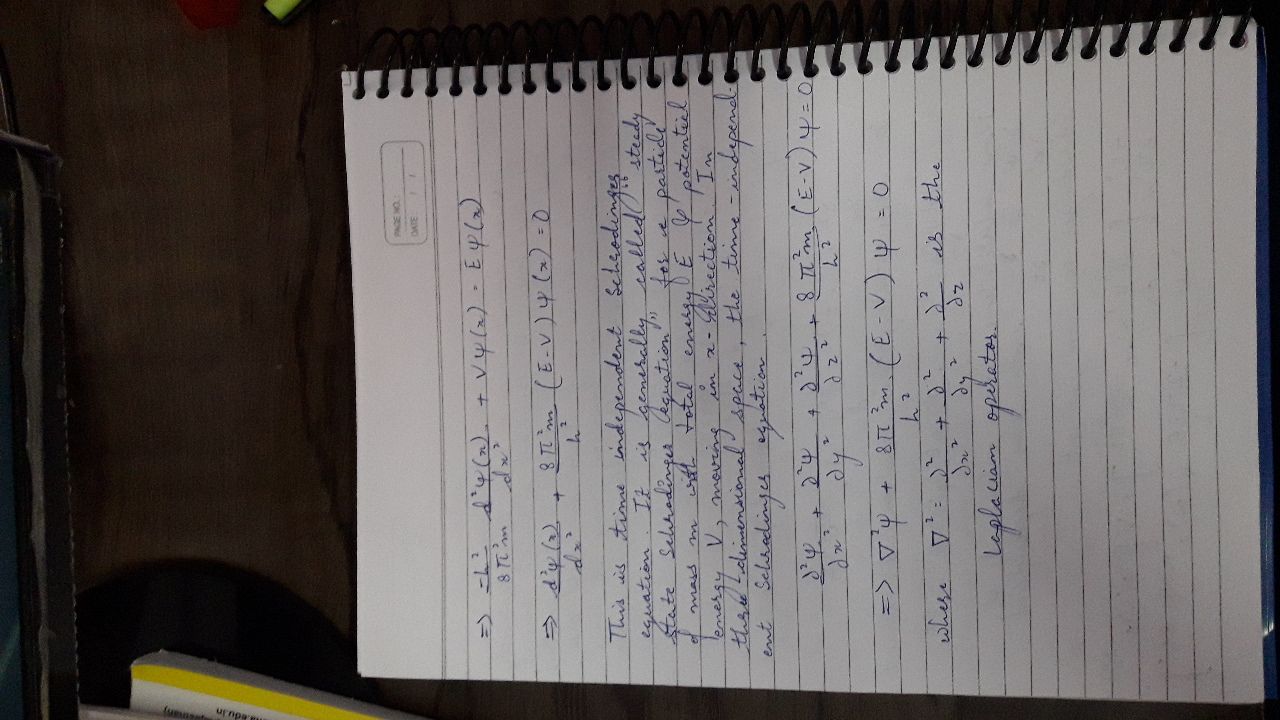 na.edu.in
PAGE NO.:
DATE: / /
=> -h²/8π²m d²ψ(x)/dx² + Vψ(x) = Eψ(x)
=> d²ψ(x)/dx² + 8π²m/h² (E-V) ψ(x) = 0
This is time independent Schrodinger
equation. It is generally called "steady
state Schrodinger equation" for a particle
of mass m with total energy E & potential
energy V, moving in x-direction. In
three-dimensional space, the time-independ-
ent Schrodinger equation.
∂²ψ/∂x² + ∂²ψ/∂y² + ∂²ψ/∂z² + 8π²m/h² (E-V) ψ = 0
=> ∇²ψ + 8π²m/h² (E-V) ψ = 0
where ∇² = ∂²/∂x² + ∂²/∂y² + ∂²/∂z is the
Laplacian operator.